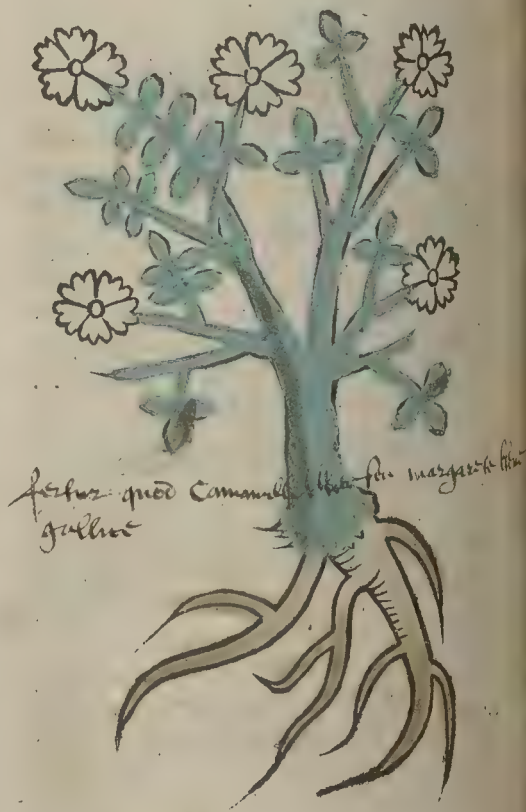 fertur quod Camamilla seu margarete
gallice